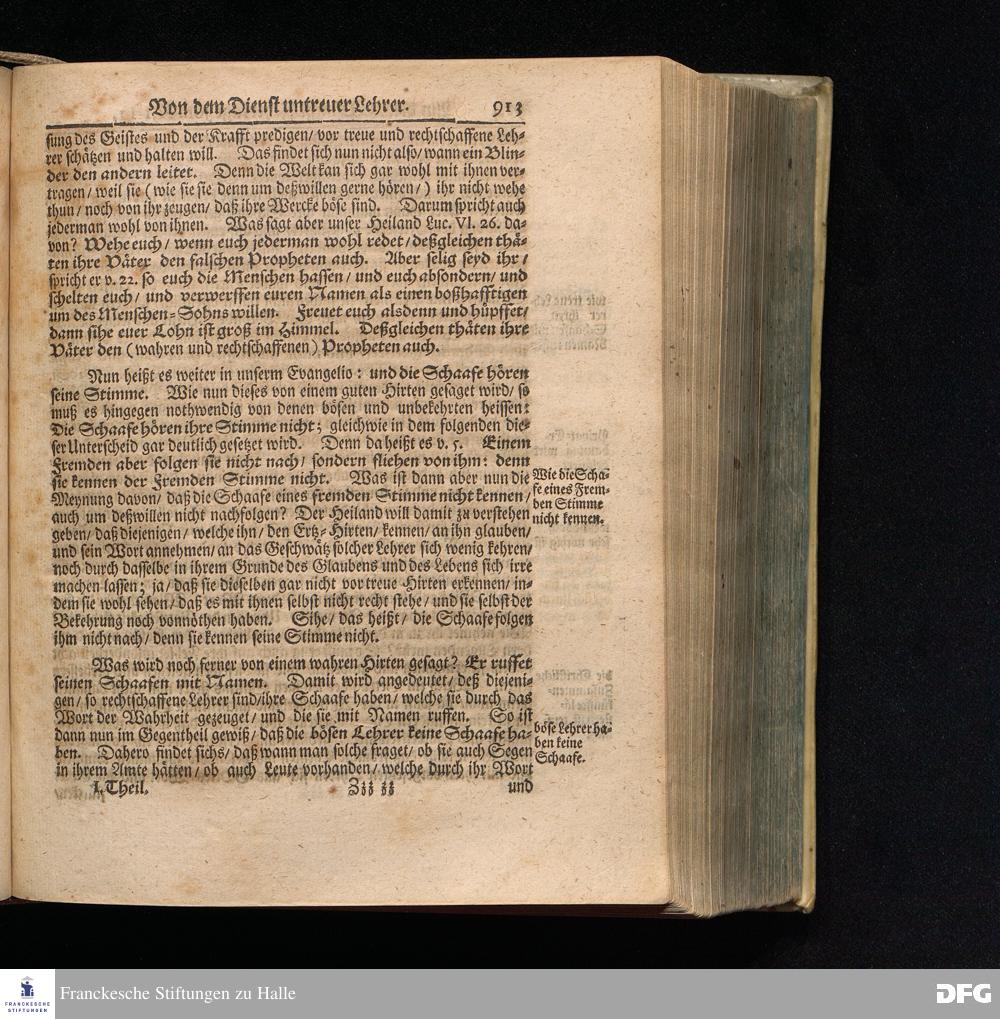 Von dem Dienst untreuer Lehrer. 913
sung des Geistes und der Krafft predigen/ vor treue und rechtschaffene Leh-
rer schätzen und halten will. Das findet sich nun nicht also/ wann ein Blin-
der den andern leitet. Denn die Welt kan sich gar wohl mit ihnen ver-
tragen/ weil sie (wie sie sie denn um deßwillen gerne hören/) ihr nicht wehe
thun/ noch von ihr zeugen/ daß ihre Wercke böse sind. Darum spricht auch
jederman wohl von ihnen. Was sagt aber unser Heiland Luc. VI. 26. da-
von? Wehe euch/ wenn euch jederman wohl redet/ deßgleichen thä-
ten ihre Väter den falschen Propheten auch. Aber selig seyd ihr/
spricht er v. 22. so euch die Menschen hassen/ und euch absondern/ und
schelten euch/ und verwerffen euren Namen als einen boßhafftigen
um des Menschen-Sohns willen. Freuet euch alsdenn und hüpffet/
dann sihe euer Lohn ist groß im Himmel. Deßgleichen thäten ihre
Väter den (wahren und rechtschaffenen) Propheten auch.
Nun heißt es weiter in unserm Evangelio: und die Schaafe hören
seine Stimme. Wie nun dieses von einem guten Hirten gesaget wird/ so
muß es hingegen nothwendig von denen bösen und unbekehrten heissen:
Die Schaafe hören ihre Stimme nicht; gleichwie in dem folgenden die-
ser Unterscheid gar deutlich gesetzet wird. Denn da heißt es v. 5. Einem
Fremden aber folgen sie nicht nach/ sondern fliehen von ihm: denn
sie kennen der Fremden Stimme nicht. Was ist dann aber nun die
Meynung davon/ daß die Schaafe eines fremden Stimme nicht kennen/
auch um deßwillen nicht nachfolgen? Der Heiland will damit zu verstehen
geben/ daß diejenigen/ welche ihn/ den Ertz-Hirten/ kennen/ an ihn glauben/
und sein Wort annehmen/ an das Geschwätz solcher Lehrer sich wenig kehren/
noch durch dasselbe in ihrem Grunde des Glaubens und des Lebens sich irre
machen lassen; ja/ daß sie dieselben gar nicht vor treue Hirten erkennen/ in-
dem sie wohl sehen/ daß es mit ihnen selbst nicht recht stehe/ und sie selbst der
Bekehrung noch vonnöthen haben. Sihe/ das heißt/ die Schaafe folgen
ihm nicht nach/ denn sie kennen seine Stimme nicht.
Wie die Scha-
fe eines Frem-
den Stimme
nicht kennen.
Was wird noch ferner von einem wahren Hirten gesagt? Er ruffet
seinen Schaafen mit Namen. Damit wird angedeutet/ deß diejeni-
gen/ so rechtschaffene Lehrer sind/ ihre Schaafe haben/ welche sie durch das
Wort der Wahrheit gezeuget/ und die sie mit Namen ruffen. So ist
dann nun im Gegentheil gewiß/ daß die bösen Lehrer keine Schaafe ha-
ben. Dahero findet sichs/ daß wann man solche fraget/ ob sie auch Segen
in ihrem Amte hätten/ ob auch Leute vorhanden/ welche durch ihr Wort
böse Lehrer ha-
ben keine
Schaafe.
I. Theil. Zzz zz und
Franckesche Stiftungen zu Halle
FRANCKESCHE
STIFTUNGEN
DFG